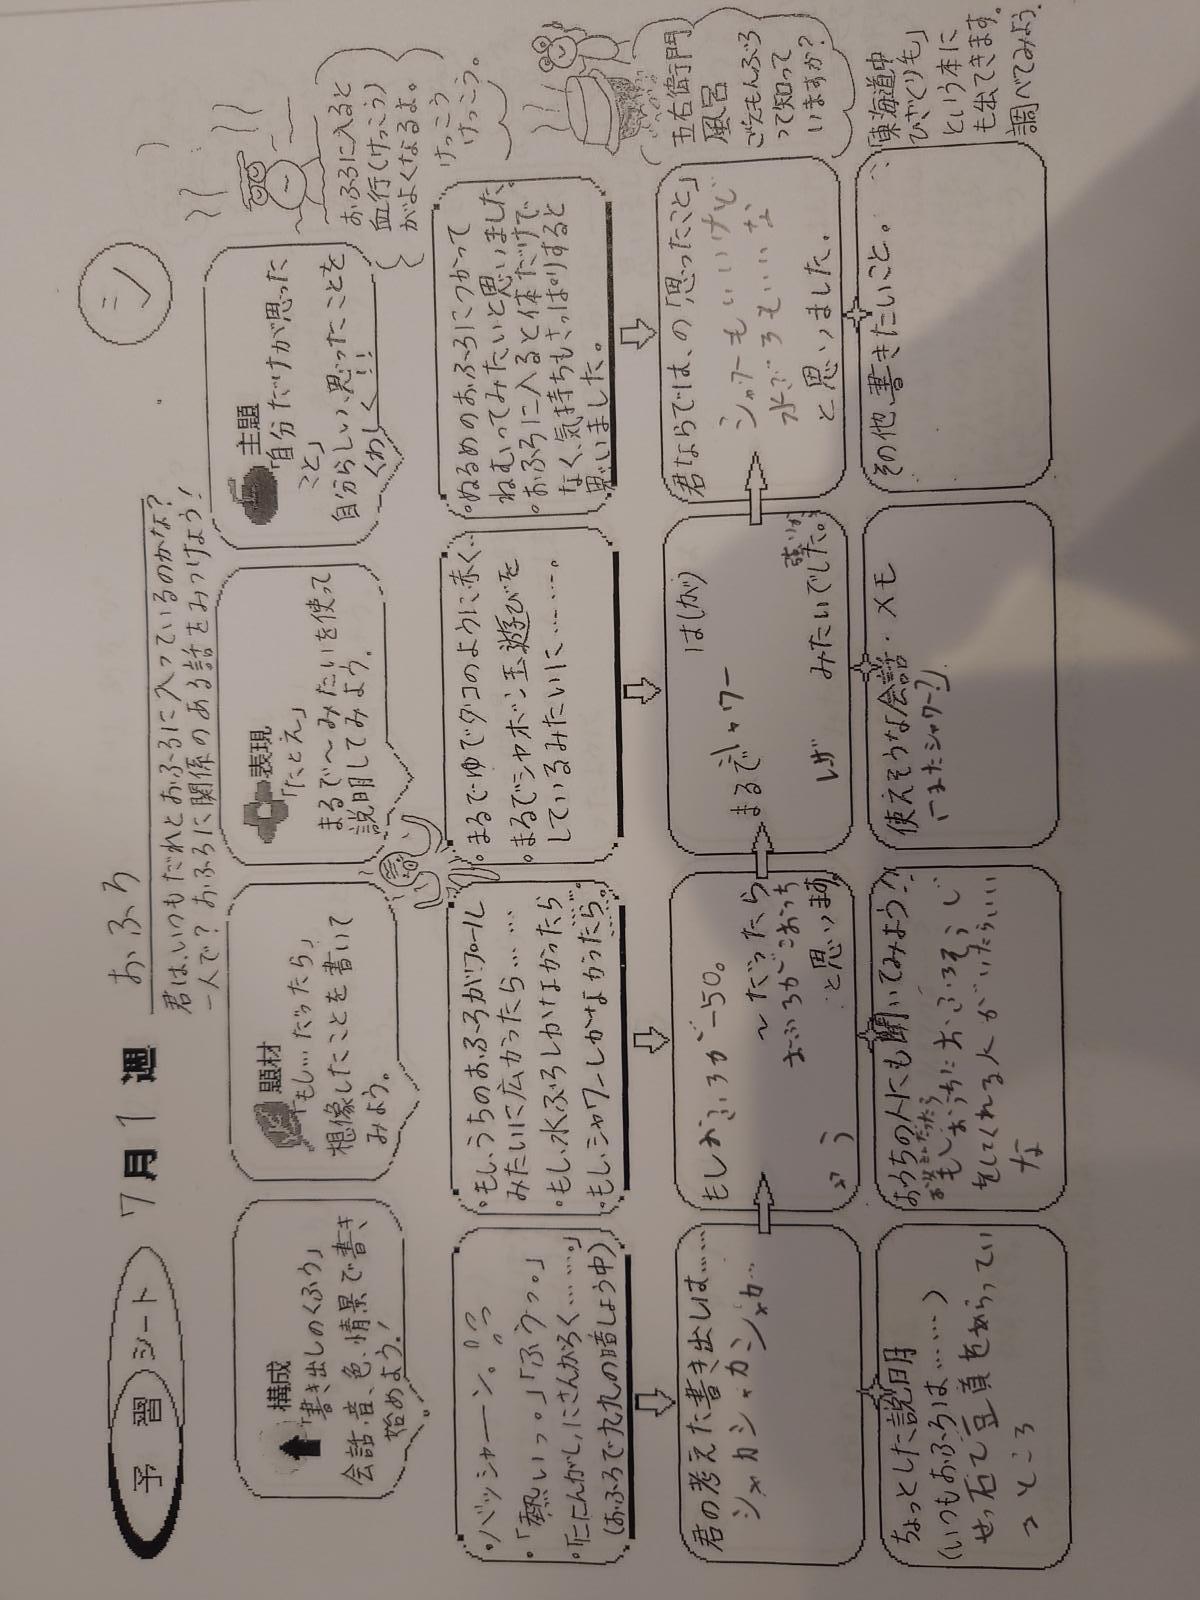 予習シート 7月1週 おふろ
ミ
君は、いつもだれとおふろに入っているのかな?
一人で? おふろに関係のある話をみつけよう!
構成
「書き出しのくふう」
会話、音、色、情景で書き
始めよう!
題材
「もし…だったら」
想像したことを書いて
みよう。
表現
「たとえ」
まるで〜みたいを使って
説明してみよう。
主題
「自分だけが思った
こと」
自分らしい、思ったことを
くわしく!!
おふろに入ると
血行(けっこう)
がよくなるよ。
けっこう
けっこう。
・バッシャーン。
・「熱いっ。」「ふうっ。」
・「にんがし、にさんがろく……。」
(おふろで九九の暗しょう中)
・もし、うちのおふろがプール
みたいに広かったら……
・もし、水ぶろしかなかったら
・もし、シャワーしかなかったら。
・まるでゆでダコのように赤く…
・まるでシャボン玉遊びを
しているみたいに……。
・ぬるめのおふろにつかって
ねむってみたいと思いました。
・おふろに入ると体だけで
なく、気持ちもさっぱりすると
思いました。
五右衛門
風呂
ごえもんぶろ
って知って
いますか?
君の考えた書き出しは……
シャカシャカシャカ…
もしおふろが－50。
〜だったら
おふろがこおっち
と思います。
まるでシャワー
はしが
みたいでした。
君ならでは、の「思ったこと」
シャワーもいいけど
水ぶろもいいな
と思いました。
「東海道中
ひざくりも」
という本に
も出てきます。
調べてみよう。
ちょっとした説明
(いつもおふろは……)
せっ石て豆頁をあらってい
ところ
おうちの人にも聞いてみよう!!
もしおうちにおふろそうじ
をしてくれる人がいたらいい
な
使えそうな会話・メモ
(「またシャワー?」)
その他、書きたいこと。